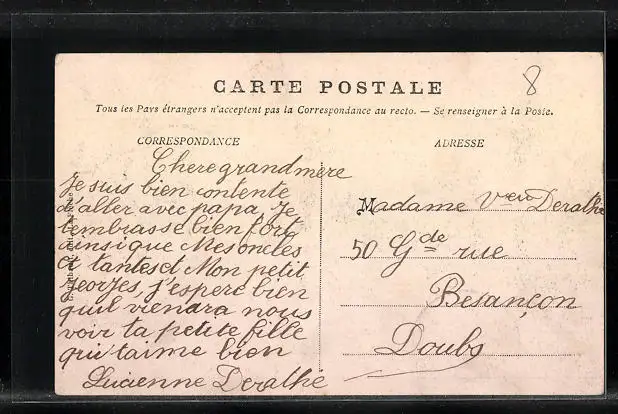 8
CARTE POSTALE
Tous les Pays étrangers n'acceptent pas la Correspondance au recto. — Se renseigner à la Poste.
CORRESPONDANCE
Chere grandmere
Je suis bien contente
d'aller avec papa Je
t'embrasse bien fort
ainsi que Mes oncles
et tantes et Mon petit
Georges, j'espere bien
quil viendra nous
voir ta petite fille
qui t'aime bien
Lucienne Derathé
ADRESSE
Madame Veuve Derathé
50 Gde rue
Besançon
Doubs